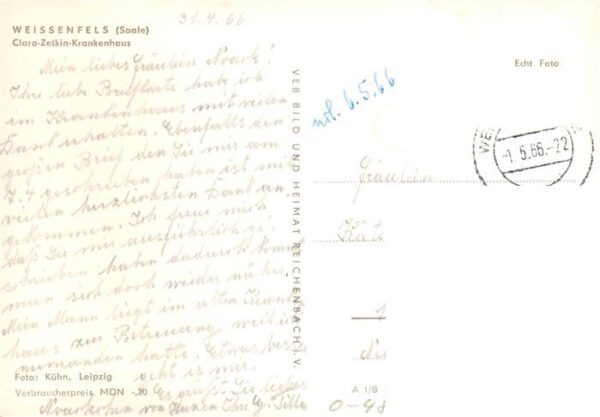 31.4.66
WEISSENFELS (Saale)
Clara-Zetkin-Krankenhaus
Mein liebes Fräulein Noack!
Ihre liebe Briefkarte habe ich
im Krankenhaus mit vielen
Dank erhalten. Ebenfalls den
großen Brief den Sie mir am
7.4 geschrieben haben ist mit
vielen herzlichsten Dank an
gekommen. Ich freue mich
daß Sie mir ausführlich ge
schrieben haben dadurch kommt
man sich doch wieder näher.
Mein Mann liegt im alten Kranken
haus zur Betreuung weil ich
niemanden hatte. Etwas besser
geht es mir.
Es grüßt Sie liebes
von Ihre
Foto: Kühn, Leipzig
Verbraucherpreis MDN -,20
VEB BILD UND HEIMAT REICHENBACH i. V.
Echt Foto
6.5.66
WE
-1.5.66.-22
Fräulein
Kät
A 1/B
0-48